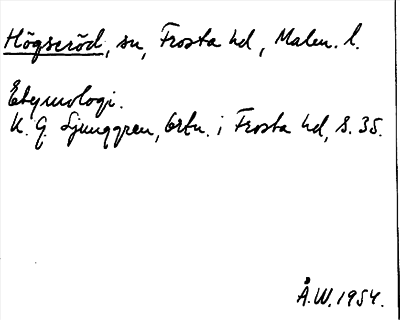 Högseröd, sn, Frosta hd, Malm. l.
Etymologi.
K. G. Ljunggren, Ortn. i Frosta hd, s. 35.
Å.W. 1954.